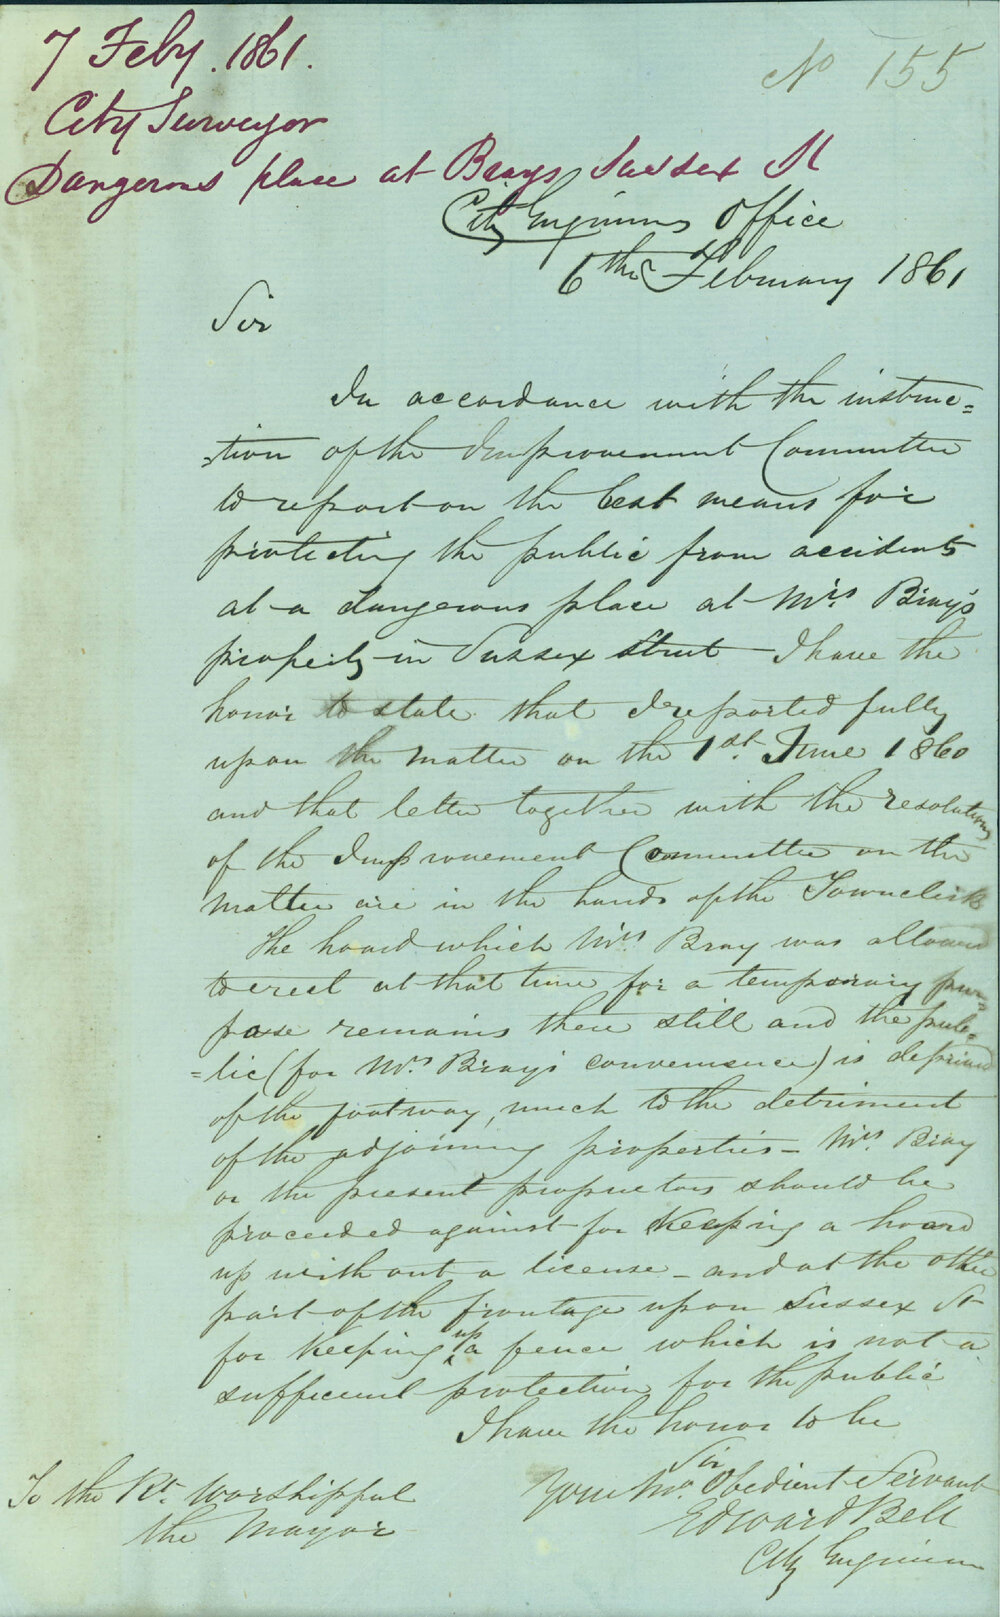 7 Feby. 1861.
No 155
City Surveyor
Dangerous place at Brays Sussex St
City Engineers Office
6th February 1861
Sir
In accordance with the instruc=
=tion of the Improvement Committee
to report on the best means for
protecting the public from accidents
at a dangerous place at Mrs. Bray's
property in Sussex Street - I have the
honor to state that I reported fully
upon the matter on the 1st. June 1860
and that letter together with the resolutions
of the Improvement Committee on the
matter are in the hands of the Town Clerk
The hoard which Mrs Bray was allowed
to erect at that time for a temporary pur=
pose remains there still and the pub=
=lic (for Mrs. Bray's convenience) is deprived
of the footway, much to the detriment
of the adjoining properties - Mrs. Bray
or the present proprietors should be
proceeded against for keeping a hoard
up without a license - and at the other
part of the frontage upon Sussex St
for keeping up a fence which is not a
sufficient protection for the public
I have the honor to be
Sir
Your Mo. Obedient Servant
Edward Bell
City Engineer
To the Rt. Worshipful
the Mayor